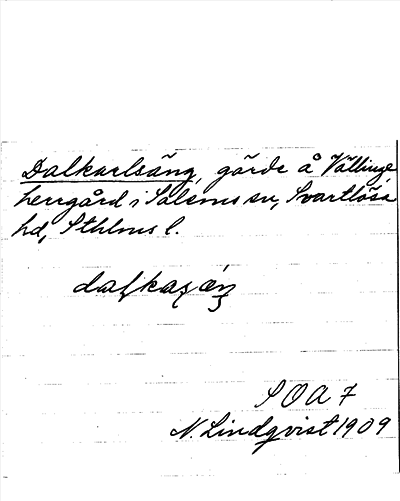 Dalkarlsäng, gärde å Vällinge
herrgård i Salems sn, Svartlösa
hd, Sthlms l.
dalkaꞃ äŋ
S O A 7
N. Lindqvist 1909